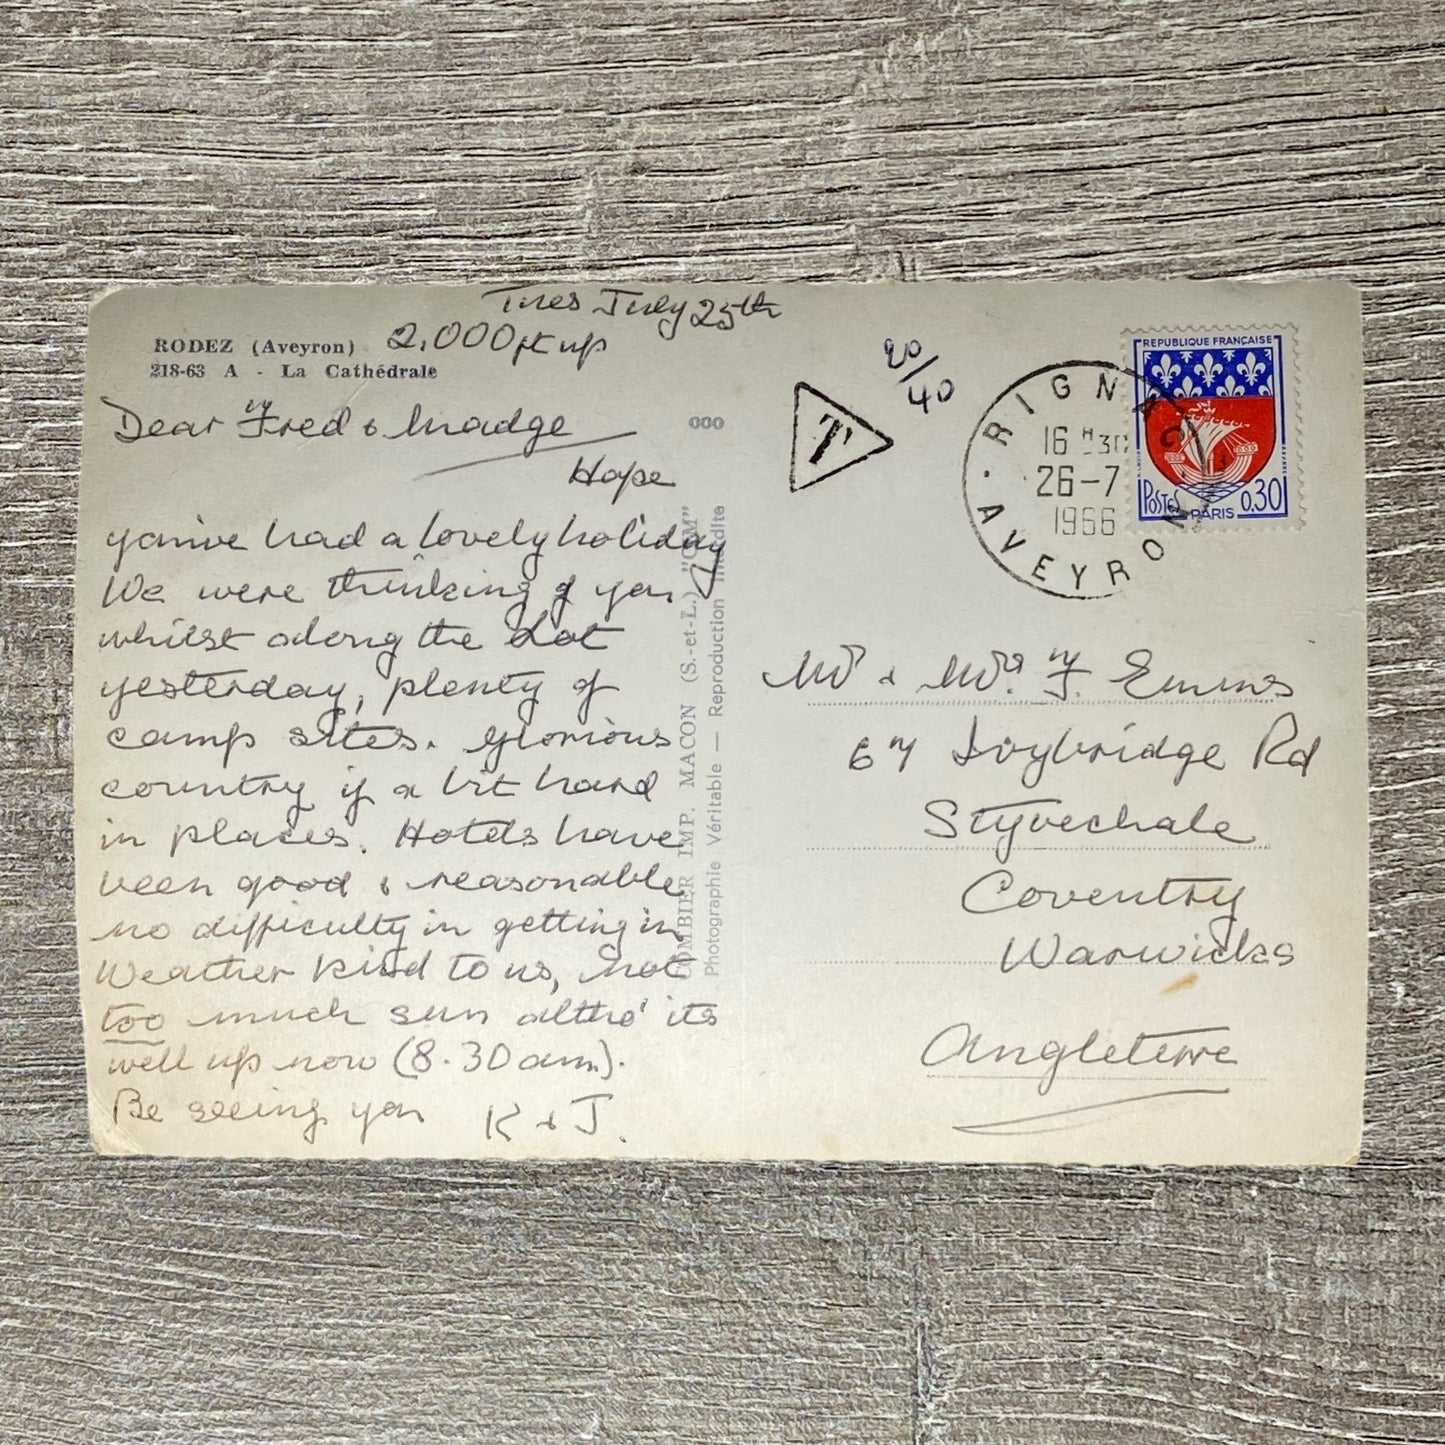 Tues July 25th
2.000 ft up
RODEZ (Aveyron)
218-63 A - La Cathédrale
Dear Fred & Madge
Hope
you've had a lovely holiday
We were thinking of you
whilst along the Lot
yesterday, plenty of
camp sites. Glorious
country if a bit hard
in places. Hotels have
been good & reasonable
no difficulty in getting in
Weather kind to us, not
too much sun altho' its
well up now (8.30am).
Be seeing you K & J.
000
COMBIER IMP. MACON (S.-et-L.) "CIM"
Photographie Véritable — Reproduction Interdite
T
20/40
RIGNAC
16 H 30
26-7
1966
AVEYRON
REPUBLIQUE FRANÇAISE
POSTES
PARIS
0,30
Mr & Mrs. F. Emms
67 Ivybridge Rd
Styvechale
Coventry
Warwicks
Angleterre